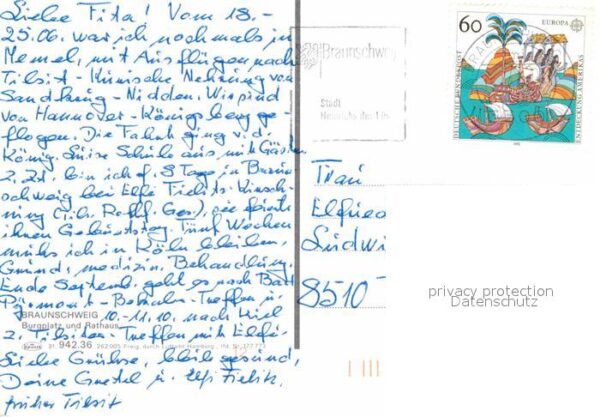 Liebe Fita! Vom 18.-
25.06. war ich nochmals in
Memel, mit Ausflügen nach
Tilsit - Kurische Nehrung von
Sandkrug - Nidden. Wir sind
von Hannover - Königsberg ge-
flogen. Die Fahrt ging v. d.
Königin Luise Schule aus mit Gästen
z. Zt. bin ich f. 8 Tage in Braun
schweig bei Elfi
ihren Geburtstag. Fünf Wochen
muss ich in Köln bleiben,
Grund, medizin. Behandlung.
Ende Septemb. geht es nach Bad
Pyrmont - Treffen u.
10.-11.10. nach Kiel
z. Tilsiter-Treffen mit Elfi.
Liebe Grüße, bleib gesund,
Deine Gretel u. Elfi
früher Tilsit
BRAUNSCHWEIG
Burgplatz und Rathaus
31 942.36
Braunschweig
Stadt
Heinrichs des Löw
60
EUROPA
DEUTSCHE BUNDESPOST
ENTDECKUNG AMERIKAS
1992
Frau
Elfried
Ludwi
8510
privacy protection
Datenschutz